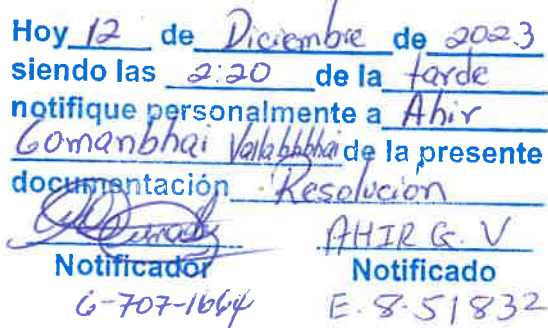 Hoy 12 de Diciembre de 2023
siendo las 2:20 de la tarde
notifique personalmente a Ahir
Gomanbhai Vallabhbhai de la presente
documentación Resolucion
AHIR G. V
Notificador Notificado
6-707-1664 E-8-51832